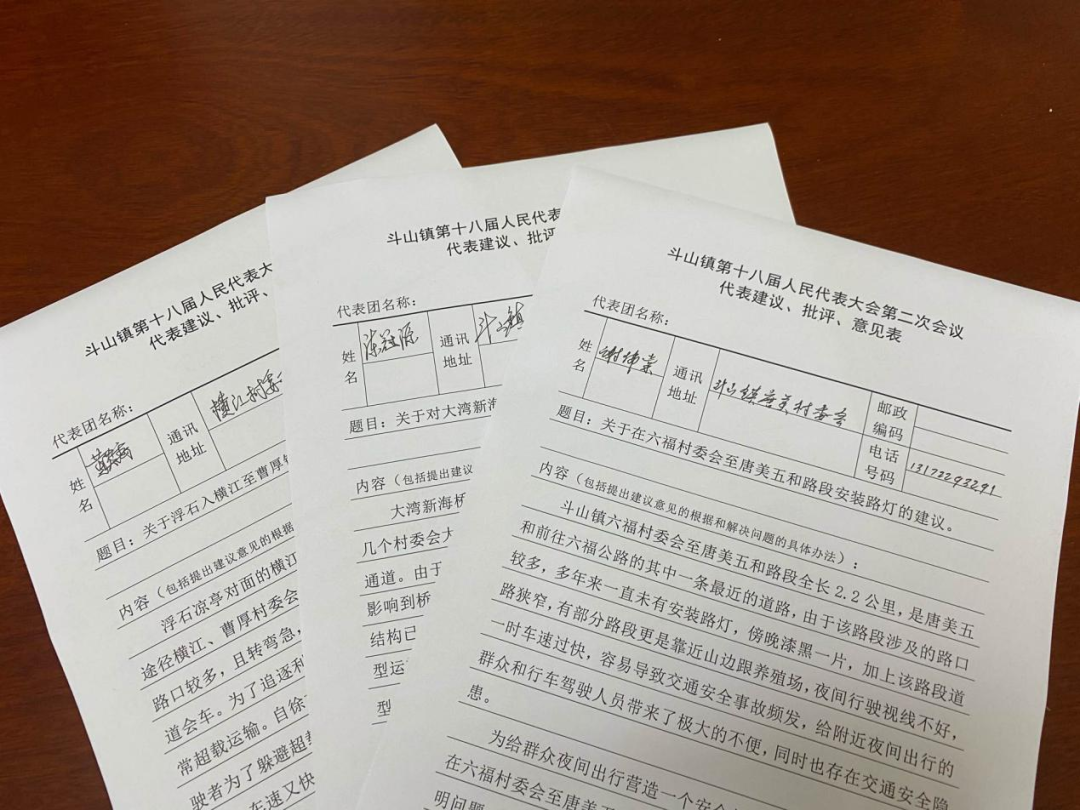 斗山镇第十八届人民代表大
代表建议、批评、
代表团名称：
姓名
通讯地址
横江村委
题目：关于浮石入横江至曹厚
内容（包括提出建议意见的根据
浮石凉亭对面的横江
途径横江、曹厚村委会
路口较多，且转弯急，
道会车。为了追逐利
常超载运输。自徐
驶者为了躲避超
车速又快
斗山镇第十八届人民代表
代表建议、批评
代表团名称：
姓名
陈冠源
通讯地址
斗山镇
题目：关于对大湾新海
内容（包括提出建议
大湾新海桥
几个村委会大
通道。由于
影响到桥
结构已
型运
型
斗山镇第十八届人民代表大会第二次会议
代表建议、批评、意见表
代表团名称：
姓名
谢坤棠
通讯地址
斗山镇唐美村委会
邮政编码
电话号码
13172293291
题目：关于在六福村委会至唐美五和路段安装路灯的建议。
内容（包括提出建议意见的根据和解决问题的具体办法）：
斗山镇六福村委会至唐美五和路段全长 2.2 公里，是唐美五
和前往六福公路的其中一条最近的道路，由于该路段涉及的路口
较多，多年来一直未有安装路灯，傍晚漆黑一片，加上该路段道
路狭窄，有部分路段更是靠近山边跟养殖场，夜间行驶视线不好，
一时车速过快，容易导致交通安全事故频发，给附近夜间出行的
群众和行车驾驶人员带来了极大的不便，同时也存在交通安全隐
患。
为给群众夜间出行营造一个安全
在六福村委会至唐美五
明问题